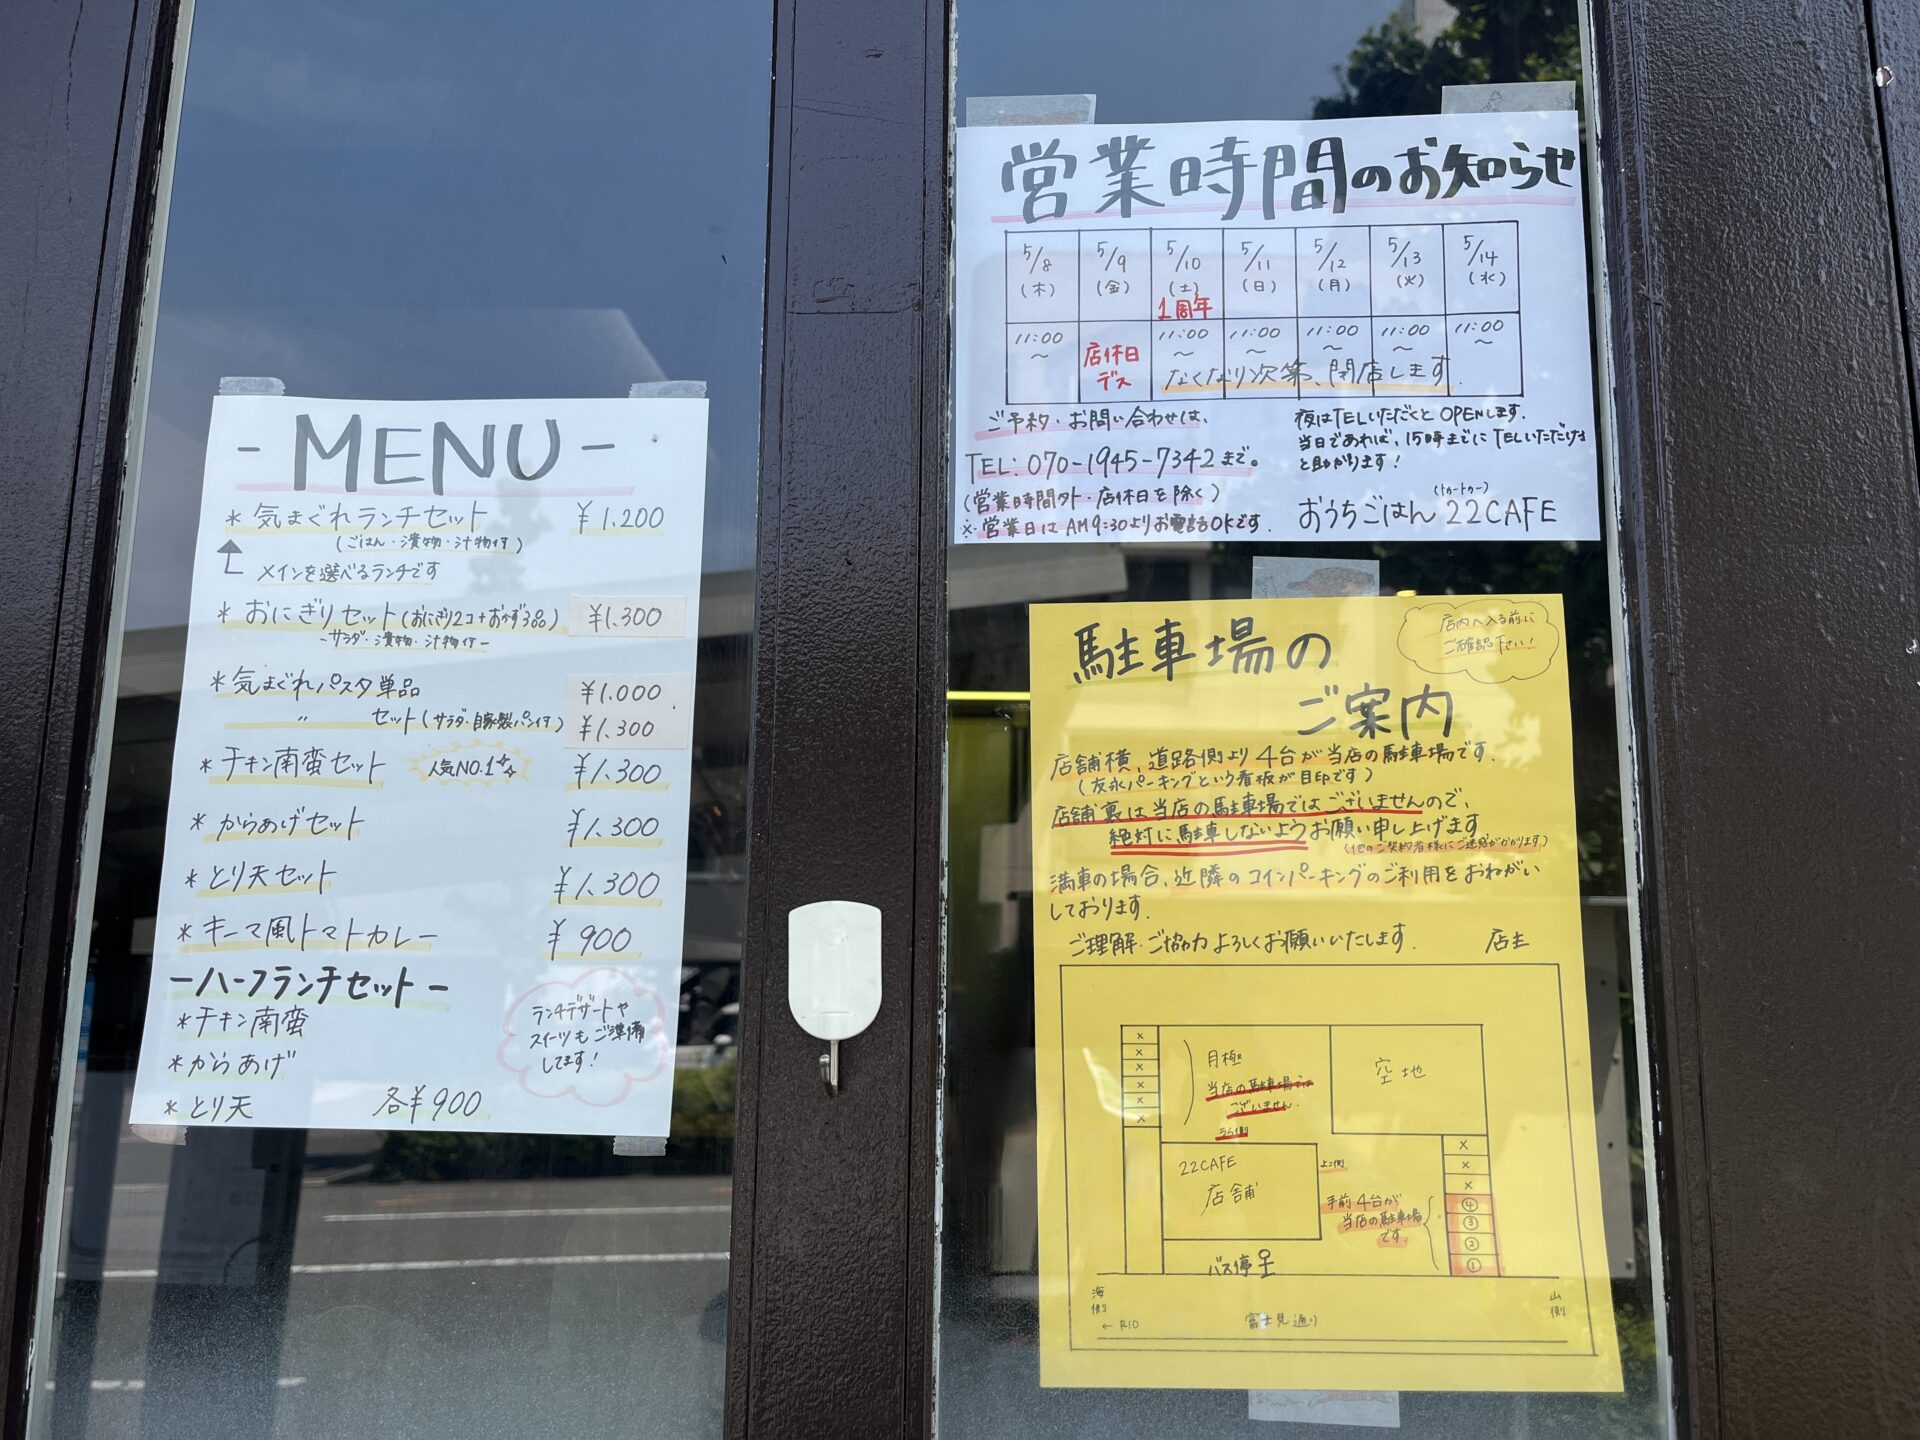 - MENU -
* 気まぐれランチセット ¥1.200
(ごはん・漬物・汁物付)
メインを選べるランチです
* おにぎりセット(おにぎり2コ+おかず3品) ¥1.300
-サラダ・漬物・汁物付-
* 気まぐれパスタ単品 ¥1.000
〃 セット(サラダ・自家製パン付) ¥1.300
* チキン南蛮セット 人気NO.1 ¥1.300
* からあげセット ¥1.300
* とり天セット ¥1.300
* キーマ風トマトカレー ¥900
ーハーフランチセットー
* チキン南蛮
* からあげ
* とり天 各¥900
ランチデザートや
スイーツもご準備
してます!
営業時間のお知らせ
5/8 5/9 5/10 5/11 5/12 5/13 5/14
(木) (金) (土) (日) (月) (火) (水)
1周年
11:00～ 店休日デス 11:00～ 11:00～ 11:00～ 11:00～ 11:00～
なくなり次第、閉店します.
ご予約・お問い合わせは、
TEL: 070-1945-7342まで。
(営業時間外・店休日を除く)
※営業日はAM9:30よりお電話OKです.
夜はTELいただくとOPENします.
当日であれば、15時までにTELいただけると助かります!
(トゥートゥー)
おうちごはん 22CAFE
駐車場の
ご案内
店内へ入る前に
ご確認下さい!
店舗横、道路側より4台が当店の駐車場です.
(友永パーキングという看板が目印です)
店舗裏は当店の駐車場ではございませんので、
絶対に駐車しないようお願い申し上げます
(他のご契約者様にご迷惑がかかります)
満車の場合、近隣のコインパーキングのご利用をおねがい
しております.
ご理解・ご協力よろしくお願いいたします. 店主
×
×
×
×
×
×
月極
当店の駐車場では
ございません.
うら側
空地
22CAFE
店舗
よこ側
手前4台が
当店の駐車場
です.
×
×
×
④
③
②
①
バス停
海側
← R10
富士見通り
山側